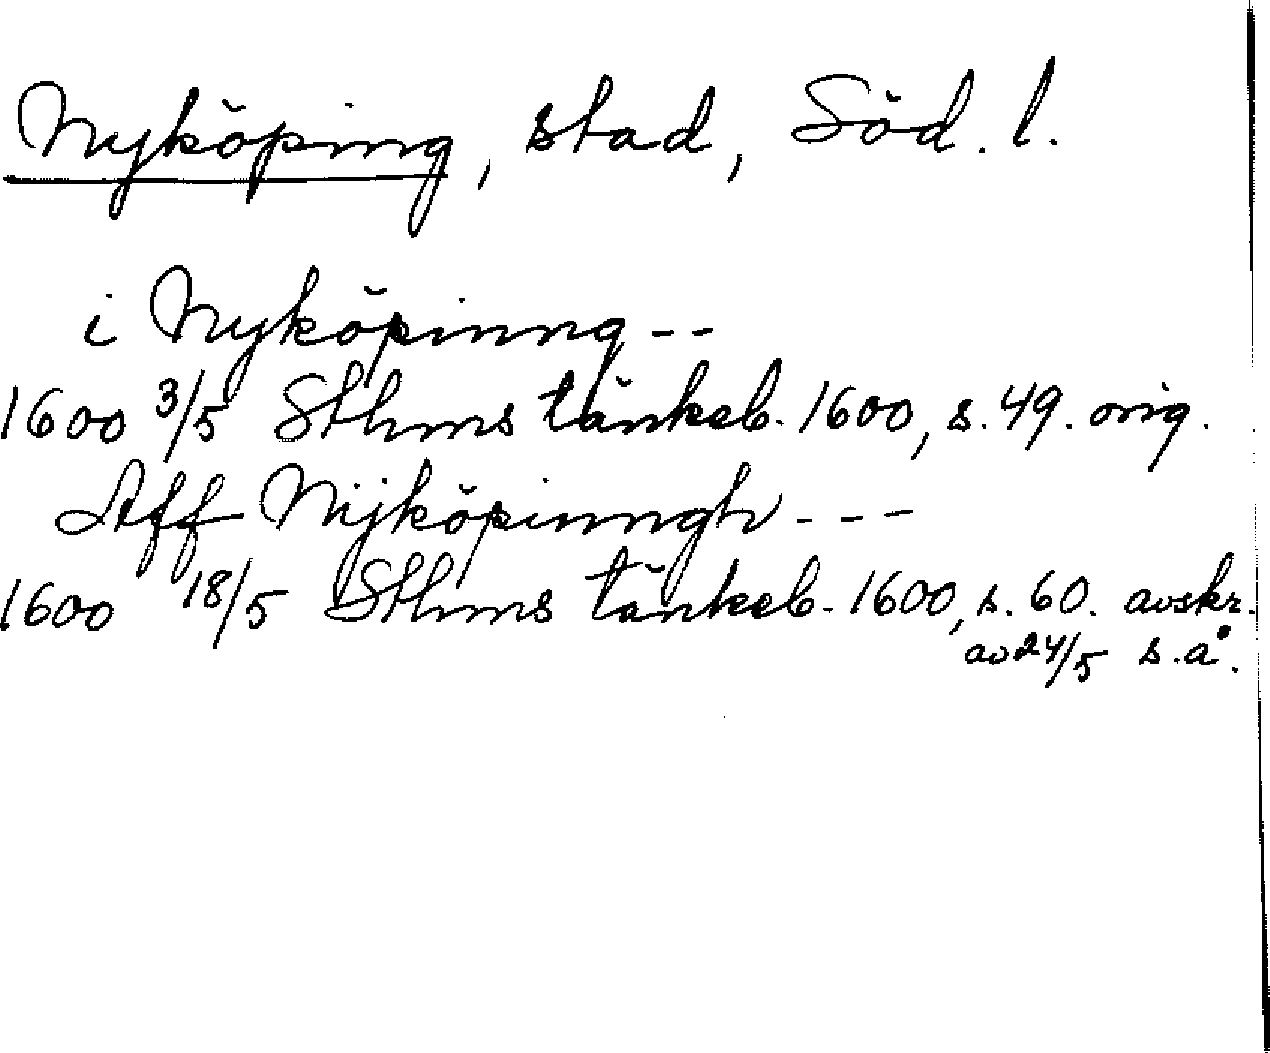 Nyköping, stad, Söd. l.
i Nyköpinng --
1600 3/5 Sthms tänkeb. 1600, s. 49. orig.
Aff Nijköpinngh ---
1600 18/5 Sthms tänkeb. 1600, s. 60. avskr.
av 24/5 s. å.